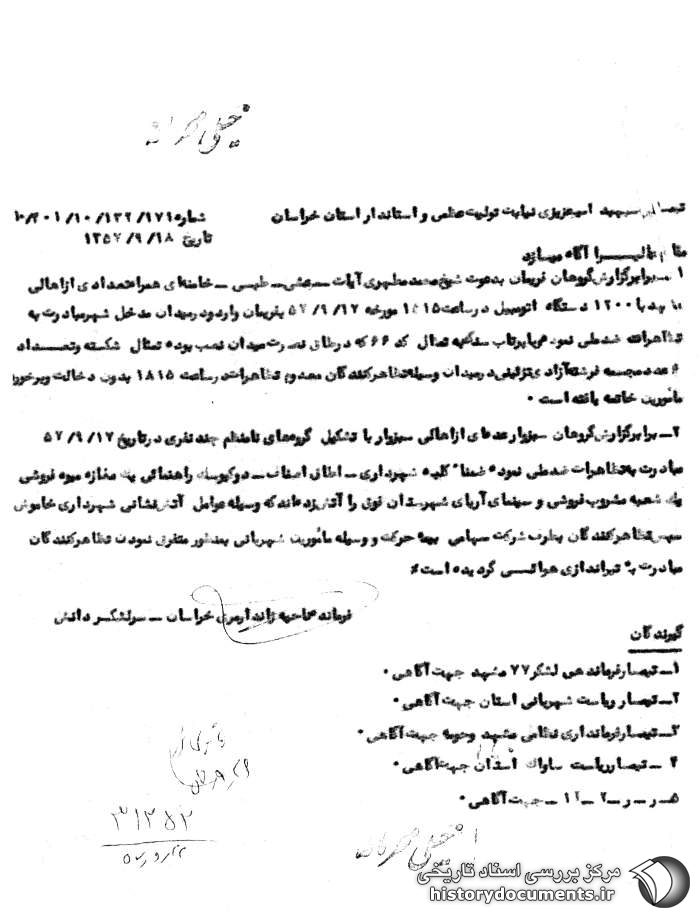 خیلی محرمانه
تیمسار سپهبد امیرعزیزی نیابت تولیت عظمی و استاندار استان خراسان
شماره ۱۰/۲۰۱/۱۰/۱۳۲/۱۷۱
تاریخ ۱۳۵۷/۹/۱۸
مقام عالی را آگاه میسازد
۱ــ برابر گزارش گروهان فریمان بدعوت شیخ محمد مطهری آیات ــ مرعشی ــ طبسی ــ خامنه‌ای همراه تعدادی از اهالی
مشهد با ۱۲۰۰ دستگاه اتومبیل در ساعت ۱۵۱۵ مورخه ۵۷/۹/۱۷ بفریمان وارد و در میدان مدخل شهر مبادرت به
تظاهرات ضد ملی نموده و با پرتاب سنگ به تمثال کد ۶۶ که در طاق نصرت میدان نصب بوده تمثال شکسته و تعداد
عدد مجسمه فرشته آزادی تزئینی در میدان وسیله تظاهرکنندگان معدوم تظاهرات در ساعت ۱۸۱۵ بدون دخالت و برخورد
مأمورین خاتمه یافته است ۰
۲ــ برابر گزارش گروهان سبزوار عده‌ای از اهالی سبزوار با تشکیل گروه‌های نامنظم چند نفری در تاریخ ۵۷/۹/۱۷
مبادرت به تظاهرات ضد ملی نموده ضمناً کلبه شهرداری ــ اطاق اصناف ــ دو کیوسک راهنمائی یک مغازه میوه فروشی
یک شعبه مشروب فروشی و سینمای آریای شهرستان فوق را آتش زده‌اند که وسیله عوامل آتش‌نشانی شهرداری خاموش
سپس تظاهرکنندگان بطرف شرکت سهامی بیمه حرکت و وسیله مأمورین شهربانی بمنظور متفرق نمودن تظاهرکنندگان
مبادرت به تیراندازی هوائی گردیده است
فرمانده ناحیه ژاندارمری خراسان ــ سرلشکر دانش
گیرندگان
۱ــ تیمسار فرماندهی لشکر ۷۷ مشهد جهت آگاهی ۰
۲ــ تیمسار ریاست شهربانی استان جهت آگاهی ۰
۳ــ تیمسار فرمانداری نظامی مشهد و حومه جهت آگاهی ۰
۴ــ تیمسار ریاست ساواک استان جهت آگاهی ۰
۵ــ ر ــ ر ــ ۲ ــ ۲۱ ــ جهت آگاهی ۰
۳۱۲۵۲
خیلی محرمانه
مرکز بررسی اسناد تاریخی
historydocuments.ir